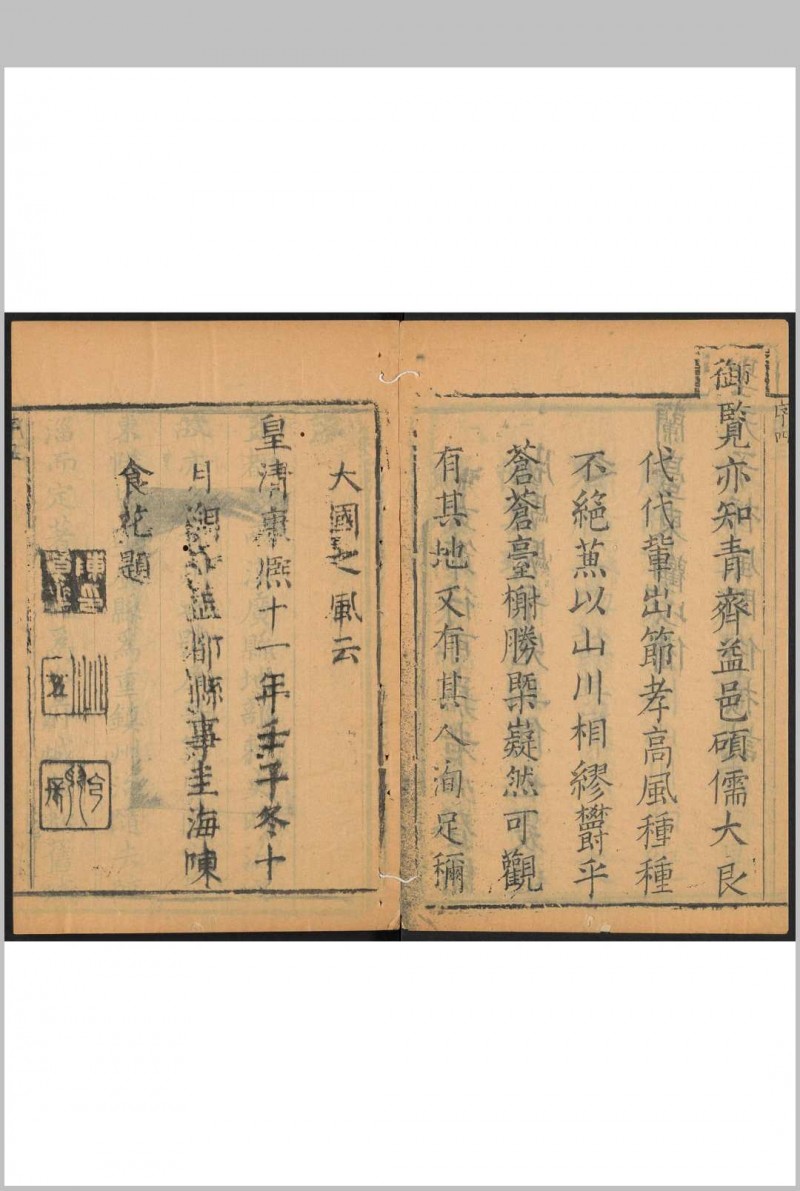 序四
御覽亦知青齊益邑碩儒大良
代代輩出節孝高風種種
不絕蕉以山川相繆欝乎
蒼蒼臺榭勝槩嶷然可觀
有其地又有其人洵足稱
大國之風云
皇清康熙十一年壬子冬十
月知益都縣事圭海陳
食花題